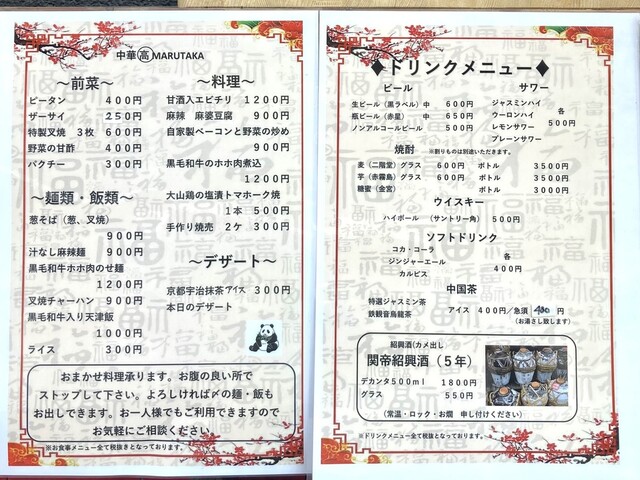 中華 高 MARUTAKA
～前菜～
ピータン 400円
ザーサイ 250円
特製叉焼 3枚 600円
野菜の甘酢 400円
パクチー 300円
～麺類・飯類～
葱そば（葱、叉焼）
900円
汁なし麻辣麺 900円
黒毛和牛ホホ肉のせ麺
1200円
叉焼チャーハン 900円
黒毛和牛入り天津飯
1000円
ライス 300円
～料理～
甘酒入エビチリ 1200円
麻辣 麻婆豆腐 900円
自家製ベーコンと野菜の炒め
900円
黒毛和牛のホホ肉煮込
1200円
大山鶏の塩漬トマホーク焼
1本 500円
手作り焼売 2ケ 300円
～デザート～
京都宇治抹茶アイス 300円
本日のデザート
おまかせ料理承ります。お腹の良い所で
ストップして下さい。よろしければ〆の麺・飯も
お出しできます。お一人様でもご利用できますので
お気軽にご相談ください。
※お食事メニュー全て税抜きとなっております。
♦ドリンクメニュー♦
ビール
生ビール（黒ラベル）中 600円
瓶ビール（赤星） 中 650円
ノンアルコールビール 500円
サワー
ジャスミンハイ
ウーロンハイ
レモンサワー
プレーンサワー
各
500円
焼酎 ※割りものは別途いただきます。
麦（二階堂）グラス 600円 ボトル 3500円
芋（赤霧島）グラス 600円 ボトル 3500円
糖蜜（金宮） ボトル 3000円
ウイスキー
ハイボール （サントリー角） 500円
ソフトドリンク
コカ・コーラ
ジンジャーエール
カルピス
各
400円
中国茶
特選ジャスミン茶
鉄観音烏龍茶
アイス 400円／急須 400円
（お湯さし致します）
紹興酒（カメ出し
関帝紹興酒（５年）
デカンタ500ml 1800円
グラス 550円
（常温・ロック・お燗 申し付けください）
※ドリンクメニュー全て税抜となっております。